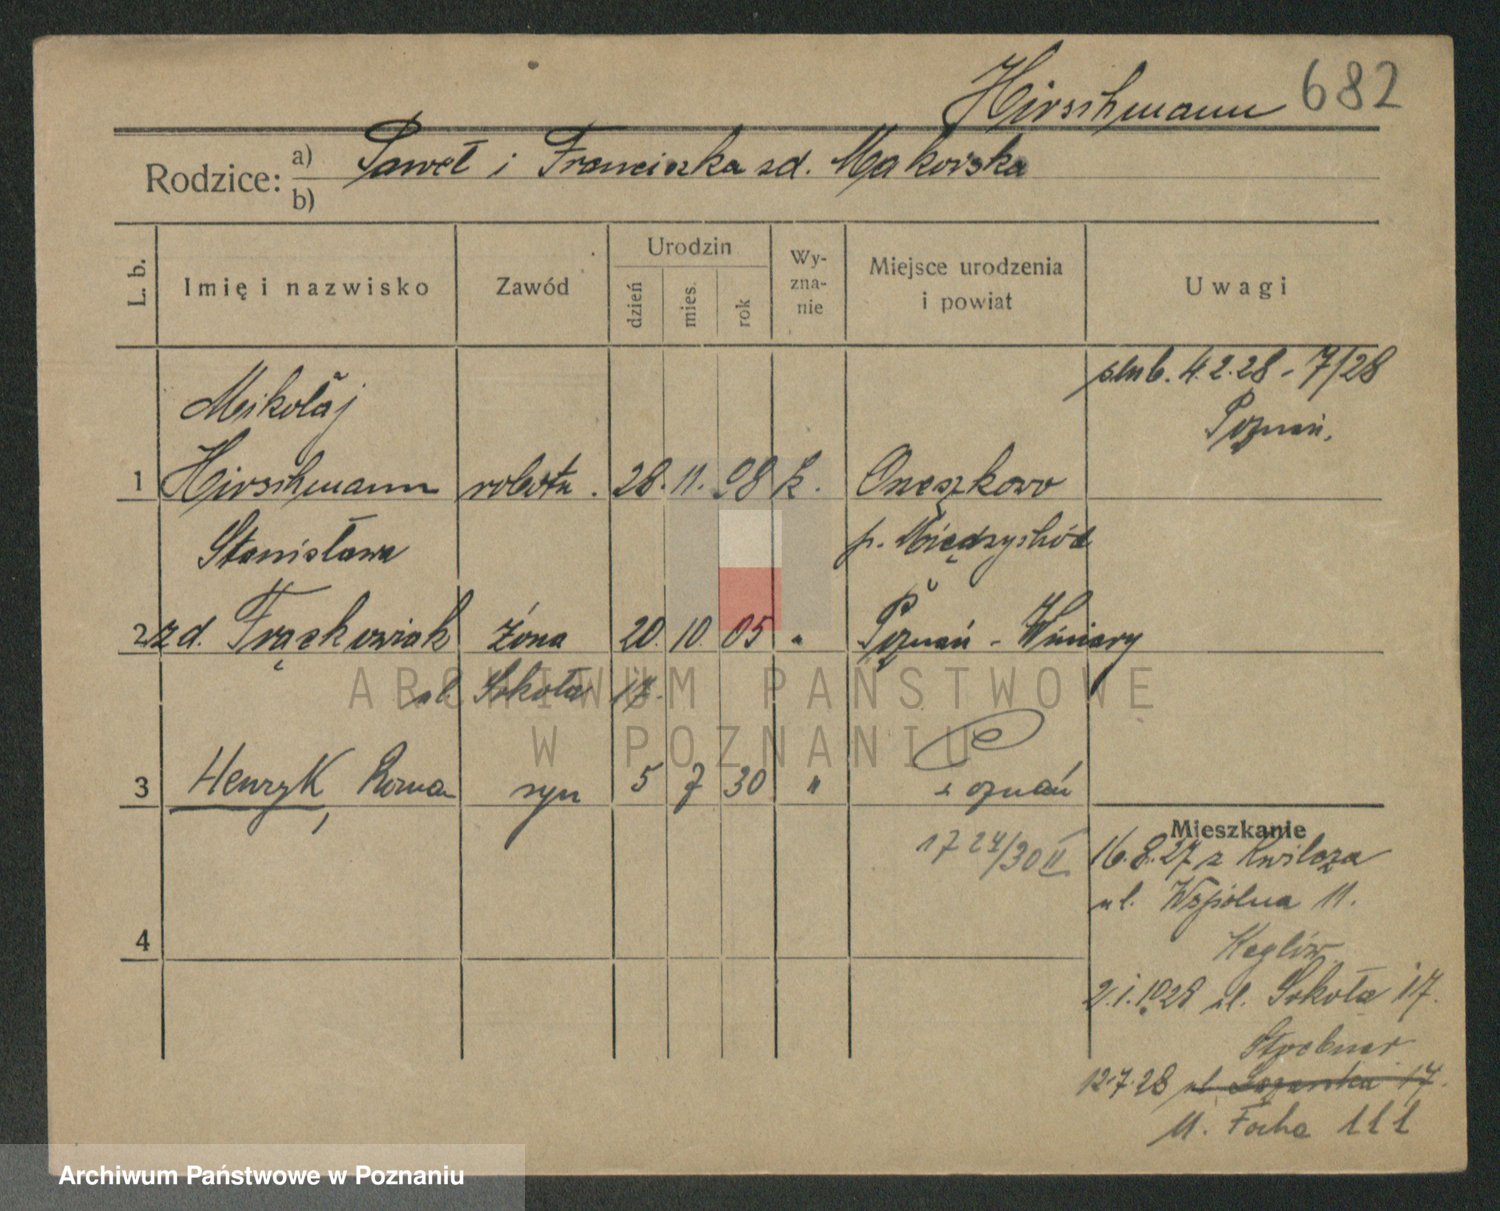 Hirschmann 682
Rodzice: a) Paweł i Franciszka zd. Makowska
b)
L. b. Imię i nazwisko Zawód Urodzin dzień mies. rok Wy-zna-nie Miejsce urodzenia i powiat Uwagi
ślub. 4.2.28 - 7/28
Poznań.
Mikołaj
1 Hirschmann robotn. 28. 11. 98 k. Orzeszkowo
Stanisława p. Międzychód
2 zd. Frąckowiak żona 20. 10. 05 " Poznań - Winiary
ul. Sokoła 17.
3 Henryk, Roman syn 5 7 30 " Poznań
17 24/30 II
Mieszkanie
16.8.27 z Kwilcza
ul. Wspólna 11.
4
2.1.1928 ul. Sokoła 17.
12.7.28 ul. 17.
ul. Focha 111
ARCHIWUM PAŃSTWOWE
W POZNANIU
Archiwum Państwowe w Poznaniu